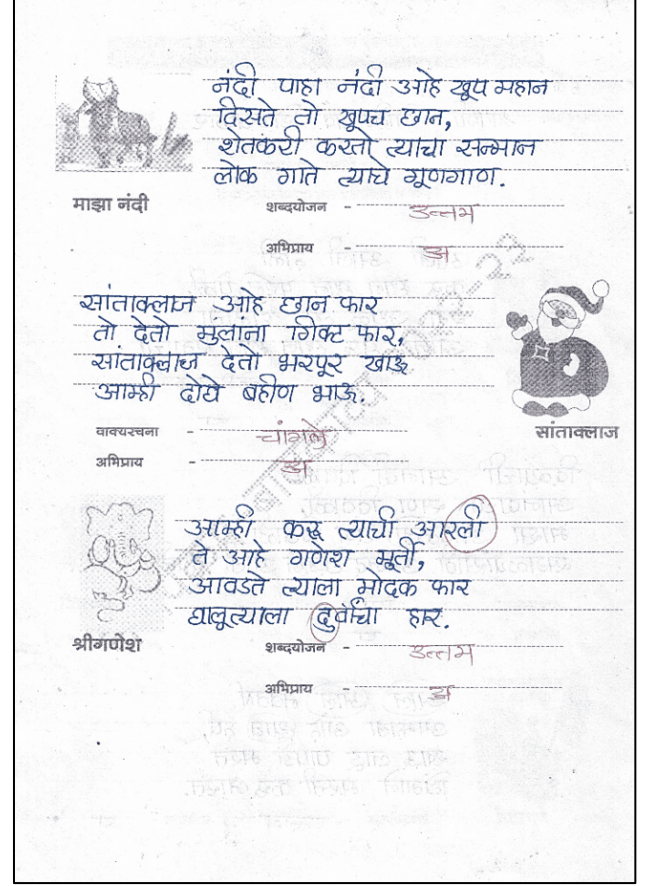 नंदी पाहा नंदी आहे खूप महान
दिसते तो खूपच छान,
शेतकरी करतो त्याचा सन्मान
लोक गाते त्याचे गूणगाण.
माझा नंदी
शब्दयोजन - उत्तम
अभिप्राय - अ
सांताक्लाज आहे छान फार
तो देतो मुलांना गिफ्ट फार,
सांताक्लाज देतो भरपूर खाऊ
आम्ही दोघे बहीण भाऊ.
वाक्यरचना - चांगले
अभिप्राय - अ
सांताक्लाज
आम्ही करू त्याची आरती
ते आहे गणेश मूर्ती,
आवडते त्याला मोदक फार
घालूत्याला दुर्वाचा हार.
श्रीगणेश
शब्दयोजन - उत्तम
अभिप्राय - अ